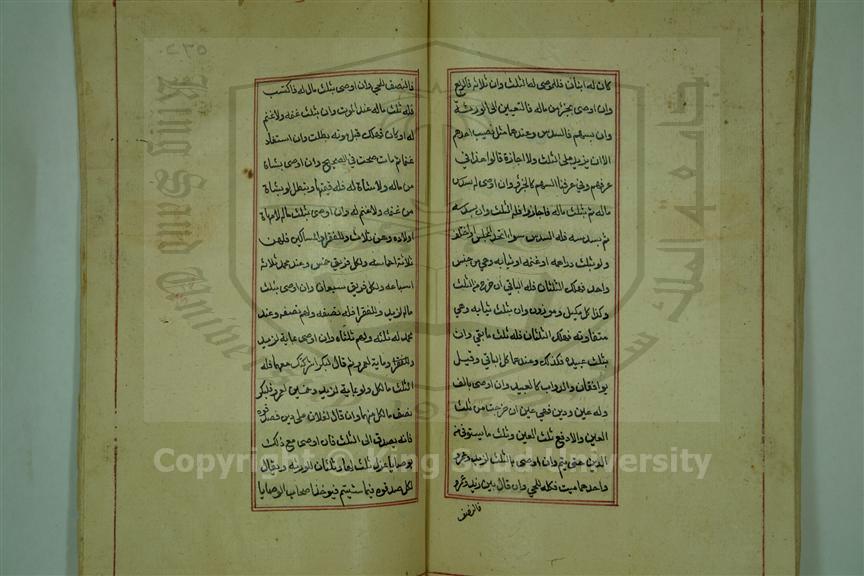 كان له ابنان فللموصى له الثلث وان ثلاثة فالربع
وان اوصى بجزء من ماله فالتعيين الى الورثة
وان بسهم فالسدس وعندهما مثل نصيب احدهم
الا ان يزيد على الثلث ولا اجازة قالوا هذا في
عرفهم وفي عرفنا السهم كالجزء وان اوصى له بسدس
ماله ثم بثلث ماله فاجازوا فله الثلث وان بسدسه
ثم بسدسه فله السدس سواء اتحد المجلس او اختلف
ولو بثلث دراهمه او غنمه او ثيابه وهي من جنس
واحد فهلك الثلثان فله الباقي ان خرج من الثلث
وكذا كل مكيل وموزون وان بثلث ثيابه وهي
متفاوتة فهلك الثلثان فله ثلث ما بقي وان
بثلث عبيده فكذلك وعندهما كل الباقي وقيل
يوافقان والدواب كالعبيد وان اوصى بالف
وله عين ودين فهي عين ان خرجت من ثلث
العين والا دفع ثلث العين وثلث ما يستوفى من
الدين حتى يتم وان اوصى بالثلث لزيد وعمرو
واحدهما ميت فكله للحي وان قال بين زيد وعمرو
فالنصف
فالنصف للحي وان اوصى بثلث ماله له فاكتسب
فله ثلث ماله عند الموت وان بثلث غنمه ولا غنم
له او كان فهلك قبل موته بطلت وان استفاد
غنما ثم مات صحت في الصحيح وان اوصى بشاة
من ماله ولا شاة له فله قيمتها ويبطل لو بشاة
من غنمه ولا غنم له وان اوصى بثلث ماله لامهات
اولاده وهن ثلاث وللفقراء والمساكين فلهن
ثلاثة اخماسه ولكل فريق خمس وعند محمد ثلاثة
اسباعه ولكل فريق سبعان وان اوصى بثلث
ماله لزيد وللفقراء فله نصفه ولهم نصفه وعند
محمد له ثلثه ولهم ثلثاه وان اوصى بماية لزيد
وماية لعمرو ثم قال لبكر اشركتك معهما فله
الثلث ما لكل ولو بماية لزيد وخمسين لعمرو فلبكر
نصف ما لكل منهما وان قال لفلان على دين فصدقوه
فانه يصدق الى الثلث فان اوصى مع ذلك
بوصايا عزل ثلث لها وثلثان للورثة ويقال
لكل صدقوه فيما شئتم فيؤخذ اصحاب الوصايا
٥٣٥
جامعة الملك سعود
King Saud University
1957
Copyright © King Saud University